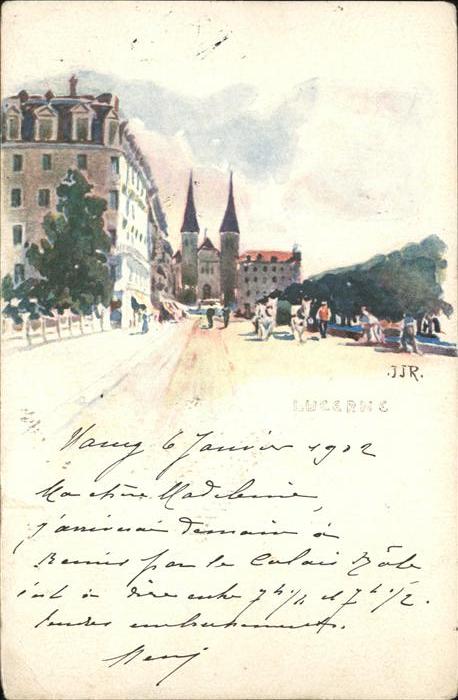 JJR.
LUCERNE
Nancy 6 Janvier 1902
Ma chère Madeleine,
j'arriverai demain à
Reims par le Calais Bâle
c'est à dire entre 7h 1/4 et 7h 1/2.
Tendres embrassements.